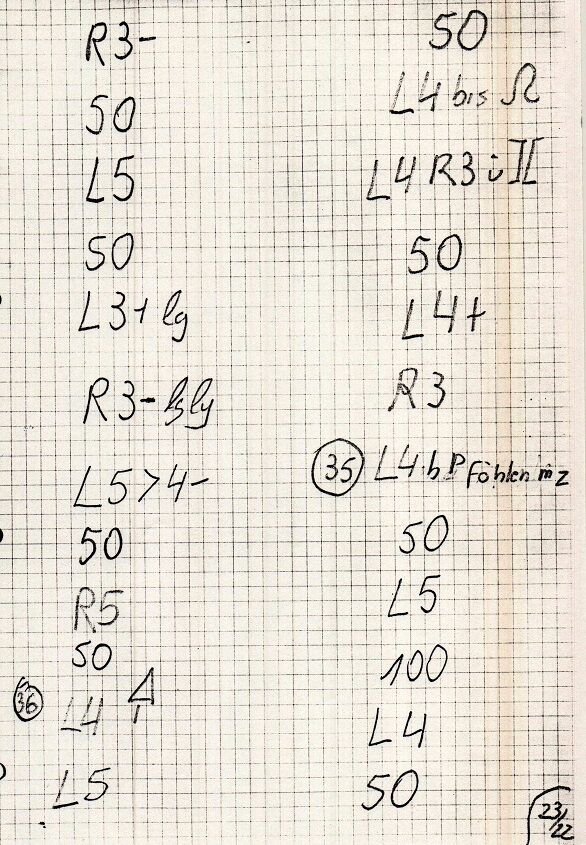 R3-
50
L5
50
L3+ lg
R3-
L5>4-
50
R5
50
36 L4
L5
50
L4 bis Ω
L4 R3 ü II
50
L4+
R3
35 L4 b P Föhlen m Z
50
L5
100
L4
50
23/22